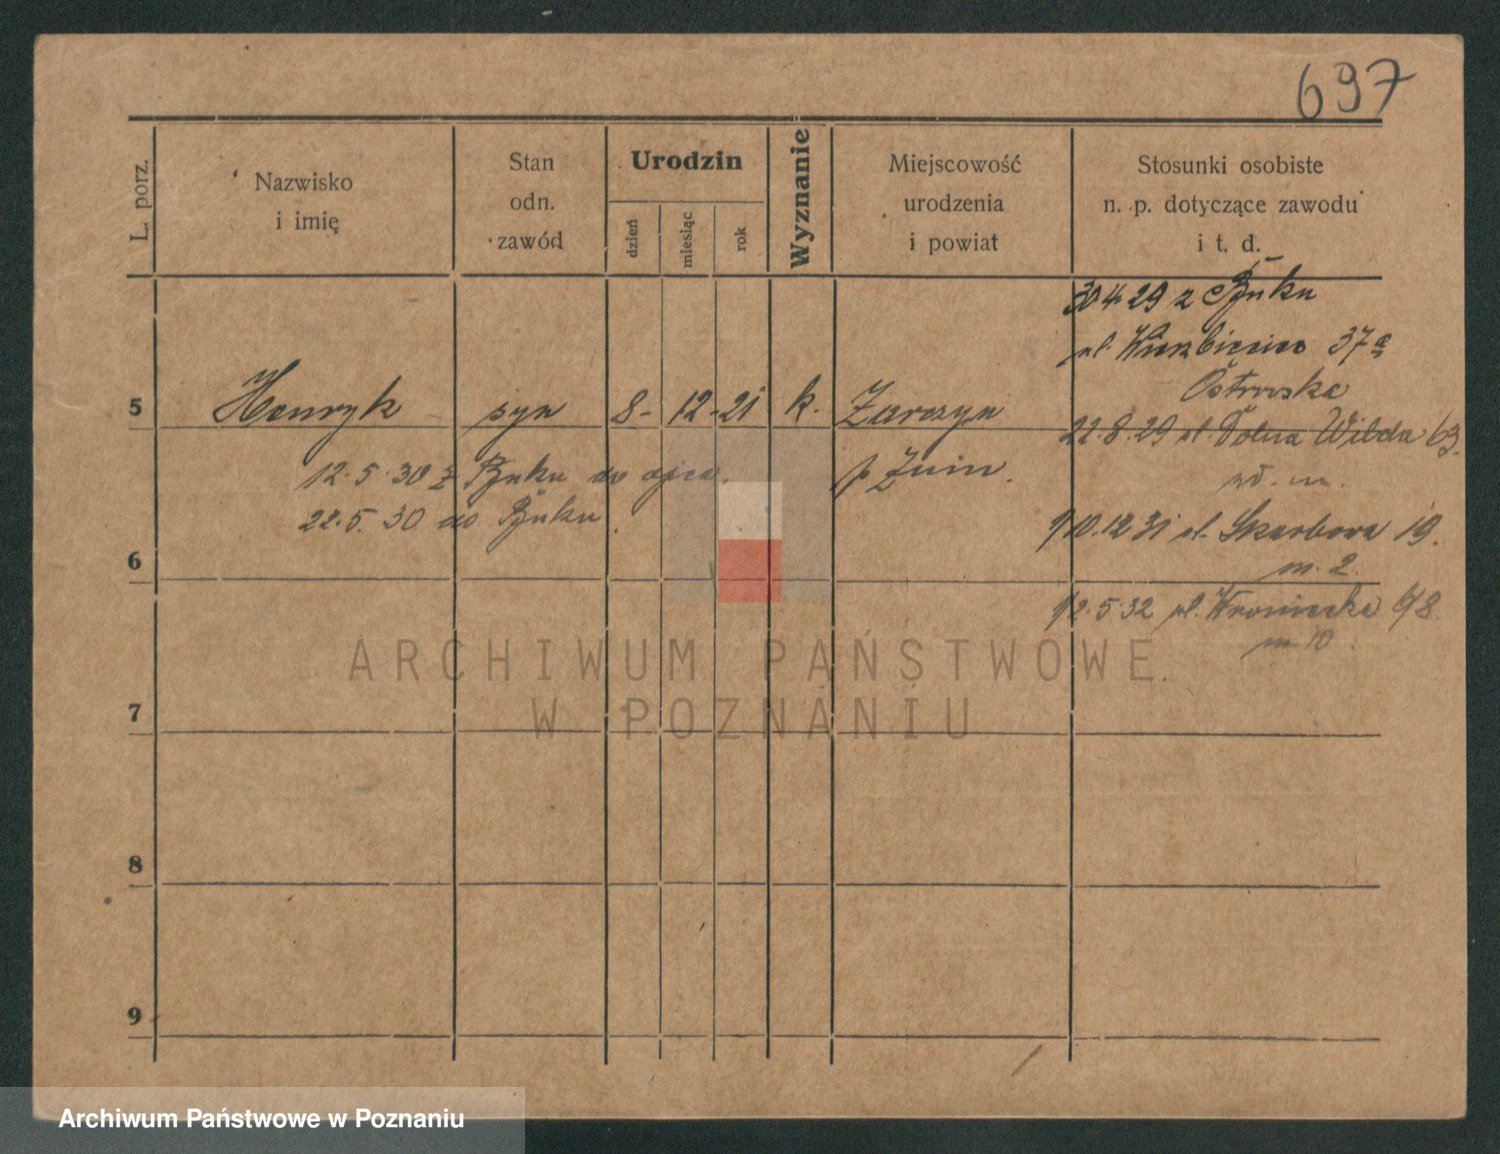 697
L. porz.
Nazwisko
i imię
Stan
odn.
zawód
Urodzin
dzień
miesiąc
rok
Wyznanie
Miejscowość
urodzenia
i powiat
Stosunki osobiste
n. p. dotyczące zawodu
i t. d.
30 4 29 z Buku
ul. 37a
Ostrowska
5 Henryk syn 8 - 12 - 21 k. Żarczyn
22.8.29 ul. Dolna Wilda 63.
12.5.30 z Buku do ojca. p Żnin.
22.5.30 do Buku.
10.12 31 ul. Skarbowa 19.
m. 2.
6
12.5.32 ul. Wroniecka
m 10.
ARCHIWUM PAŃSTWOWE
W POZNANIU
7
8
9
Archiwum Państwowe w Poznaniu